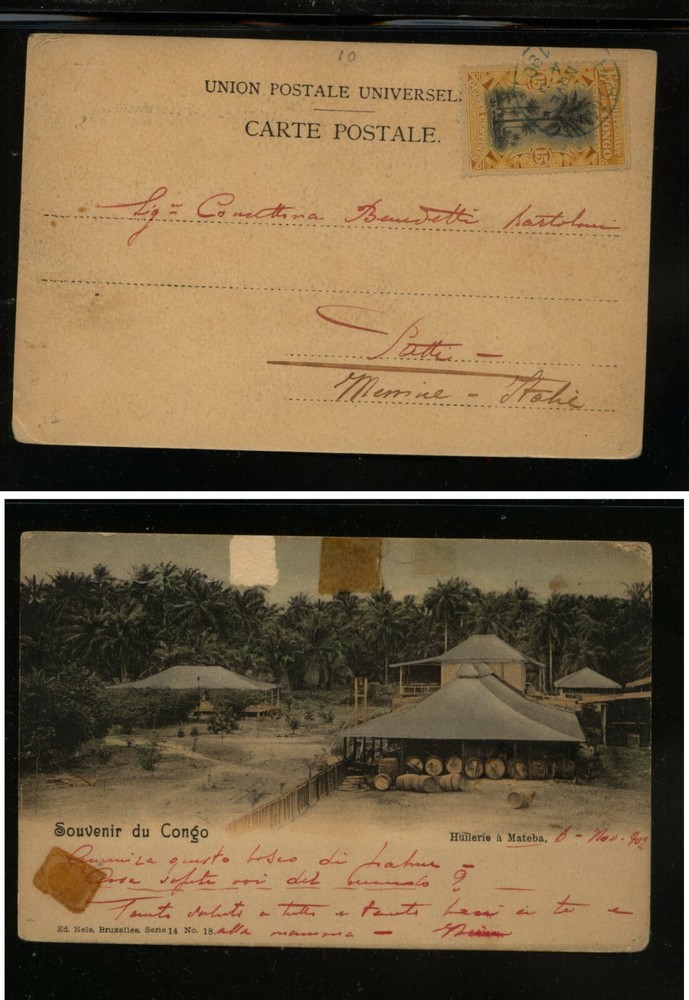 10
UNION POSTALE UNIVERSEL
CARTE POSTALE.
15
CONGO
15
Sigª Benedetti Bartoloni
Patti -
Messine - Italie
Souvenir du Congo
Huilerie à Mateba, 6 - Nov. 903
questo bosco di palme -
Cosa sapete voi del mondo ?
Tanti saluti a tutti e tanti baci a te e
Ed. Nels, Bruxelles. Serie 14 No. 18. alla mamma -